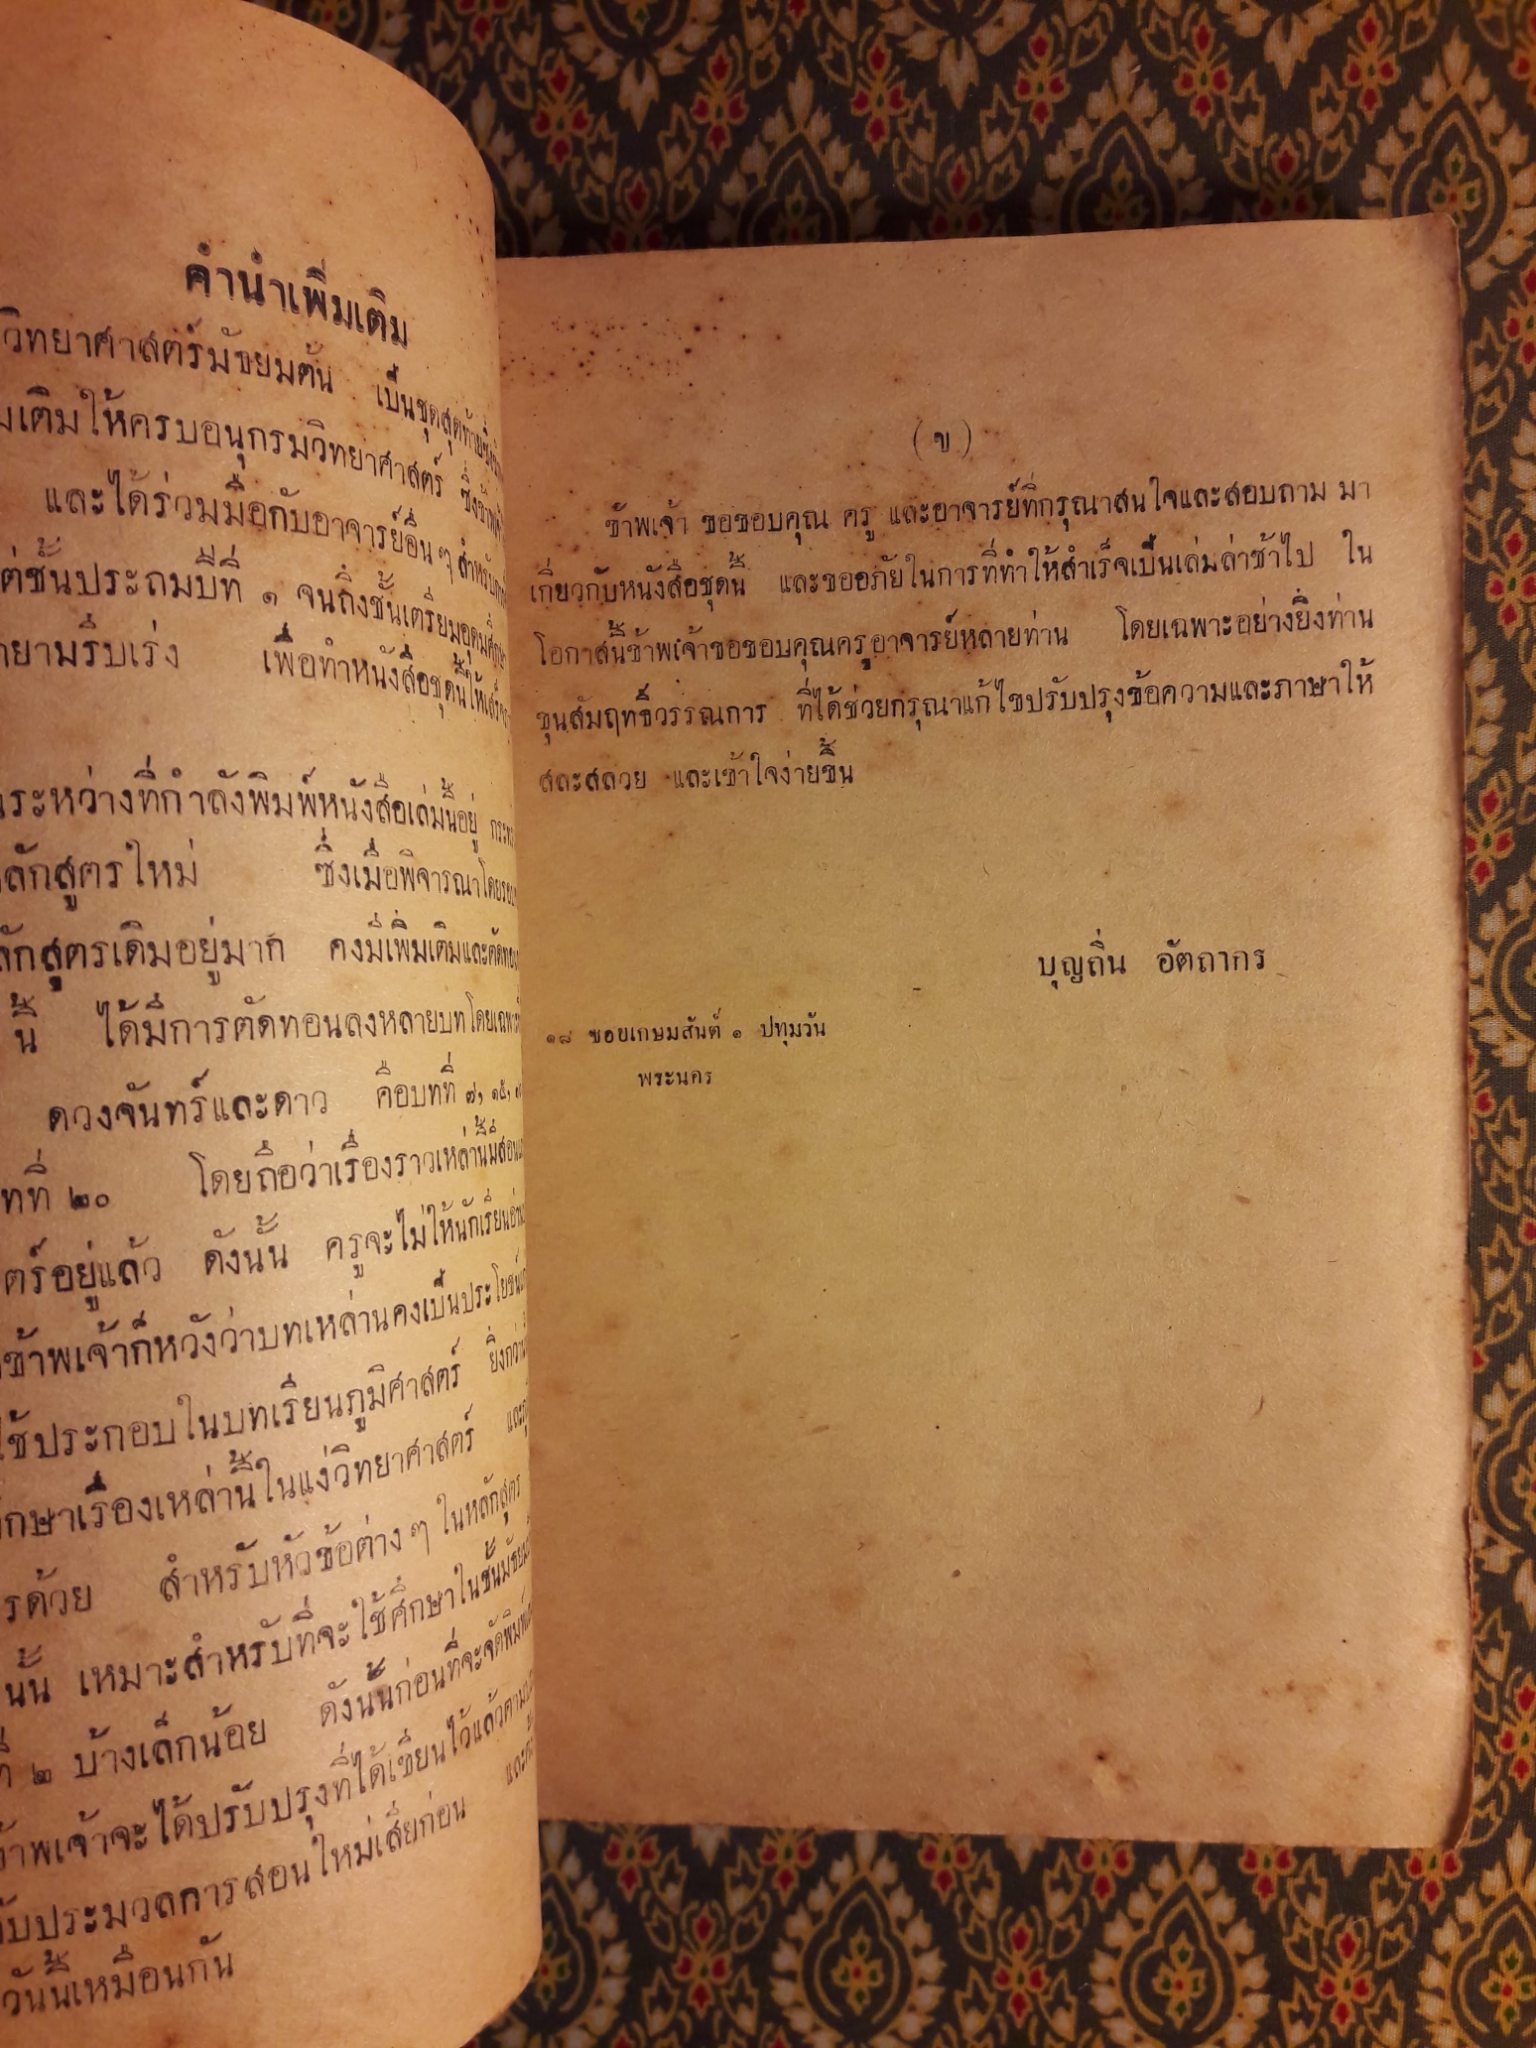 คำนำเพิ่มเติม
วิทยาศาสตร์มัธยมต้น เป็นชุดสุดท้ายซึ่ง
มเติมให้ครบอนุกรมวิทยาศาสตร์ ซึ่งข้าพเจ้า
และได้ร่วมมือกับอาจารย์อื่น ๆ สำหรับ
ต่ชั้นประถมปีที่ ๑ จนถึงชั้นเตรียมอุดมศึกษา
ายามรีบเร่ง เพื่อทำหนังสือชุดนี้ให้เสร็จ
ระหว่างที่กำลังพิมพ์หนังสือเล่มนี้อยู่ กระทร
ลักสูตรใหม่ ซึ่งเมื่อพิจารณาโดยรอบ
ลักสูตรเดิมอยู่มาก คงมีเพิ่มเติมและตัดทอน
นี้ ได้มีการตัดทอนลงหลายบทโดยเฉพาะ
ดวงจันทร์และดาว คือบทที่ ๗, ๑๕,
ทที่ ๒๐ โดยถือว่าเรื่องราวเหล่านี้มีสอน
ตร์อยู่แล้ว ดังนั้น ครูจะไม่ให้นักเรียนอ่าน
ข้าพเจ้าก็หวังว่าบทเหล่านคงเป็นประโยชน์
ใช้ประกอบในบทเรียนภูมิศาสตร์ ยิ่งกว่า
ึกษาเรื่องเหล่านี้ในแง่วิทยาศาสตร์ และ
รด้วย สำหรับหัวข้อต่าง ๆ ในหลักสูตร
นั้น เหมาะสำหรับที่จะใช้ศึกษาในชั้นมัธยม
ที่ ๒ บ้างเล็กน้อย ดังนั้นก่อนที่จะจัดพิมพ์
ข้าพเจ้าจะได้ปรับปรุงที่ได้เขียนไว้แล้วตาม
ับประมวลการสอนใหม่เสียก่อน และ
วันนี้เหมือนกัน
(ข)
ข้าพเจ้า ขอขอบคุณ ครู และอาจารย์ที่กรุณาสนใจและสอบถาม มา
เกี่ยวกับหนังสือชุดนี้ และขออภัยในการที่ทำให้สำเร็จเป็นเล่มล่าช้าไป ใน
โอกาสนี้ข้าพเจ้าขอขอบคุณครูอาจารย์หลายท่าน โดยเฉพาะอย่างยิ่งท่าน
ขุนสัมฤทธิ์วรรณการ ที่ได้ช่วยกรุณาแก้ไขปรับปรุงข้อความและภาษาให้
สละสลวย และเข้าใจง่ายขึ้น
บุญถิ่น อัตถากร
๑๘ ซอยเกษมสันต์ ๑ ปทุมวัน
พระนคร